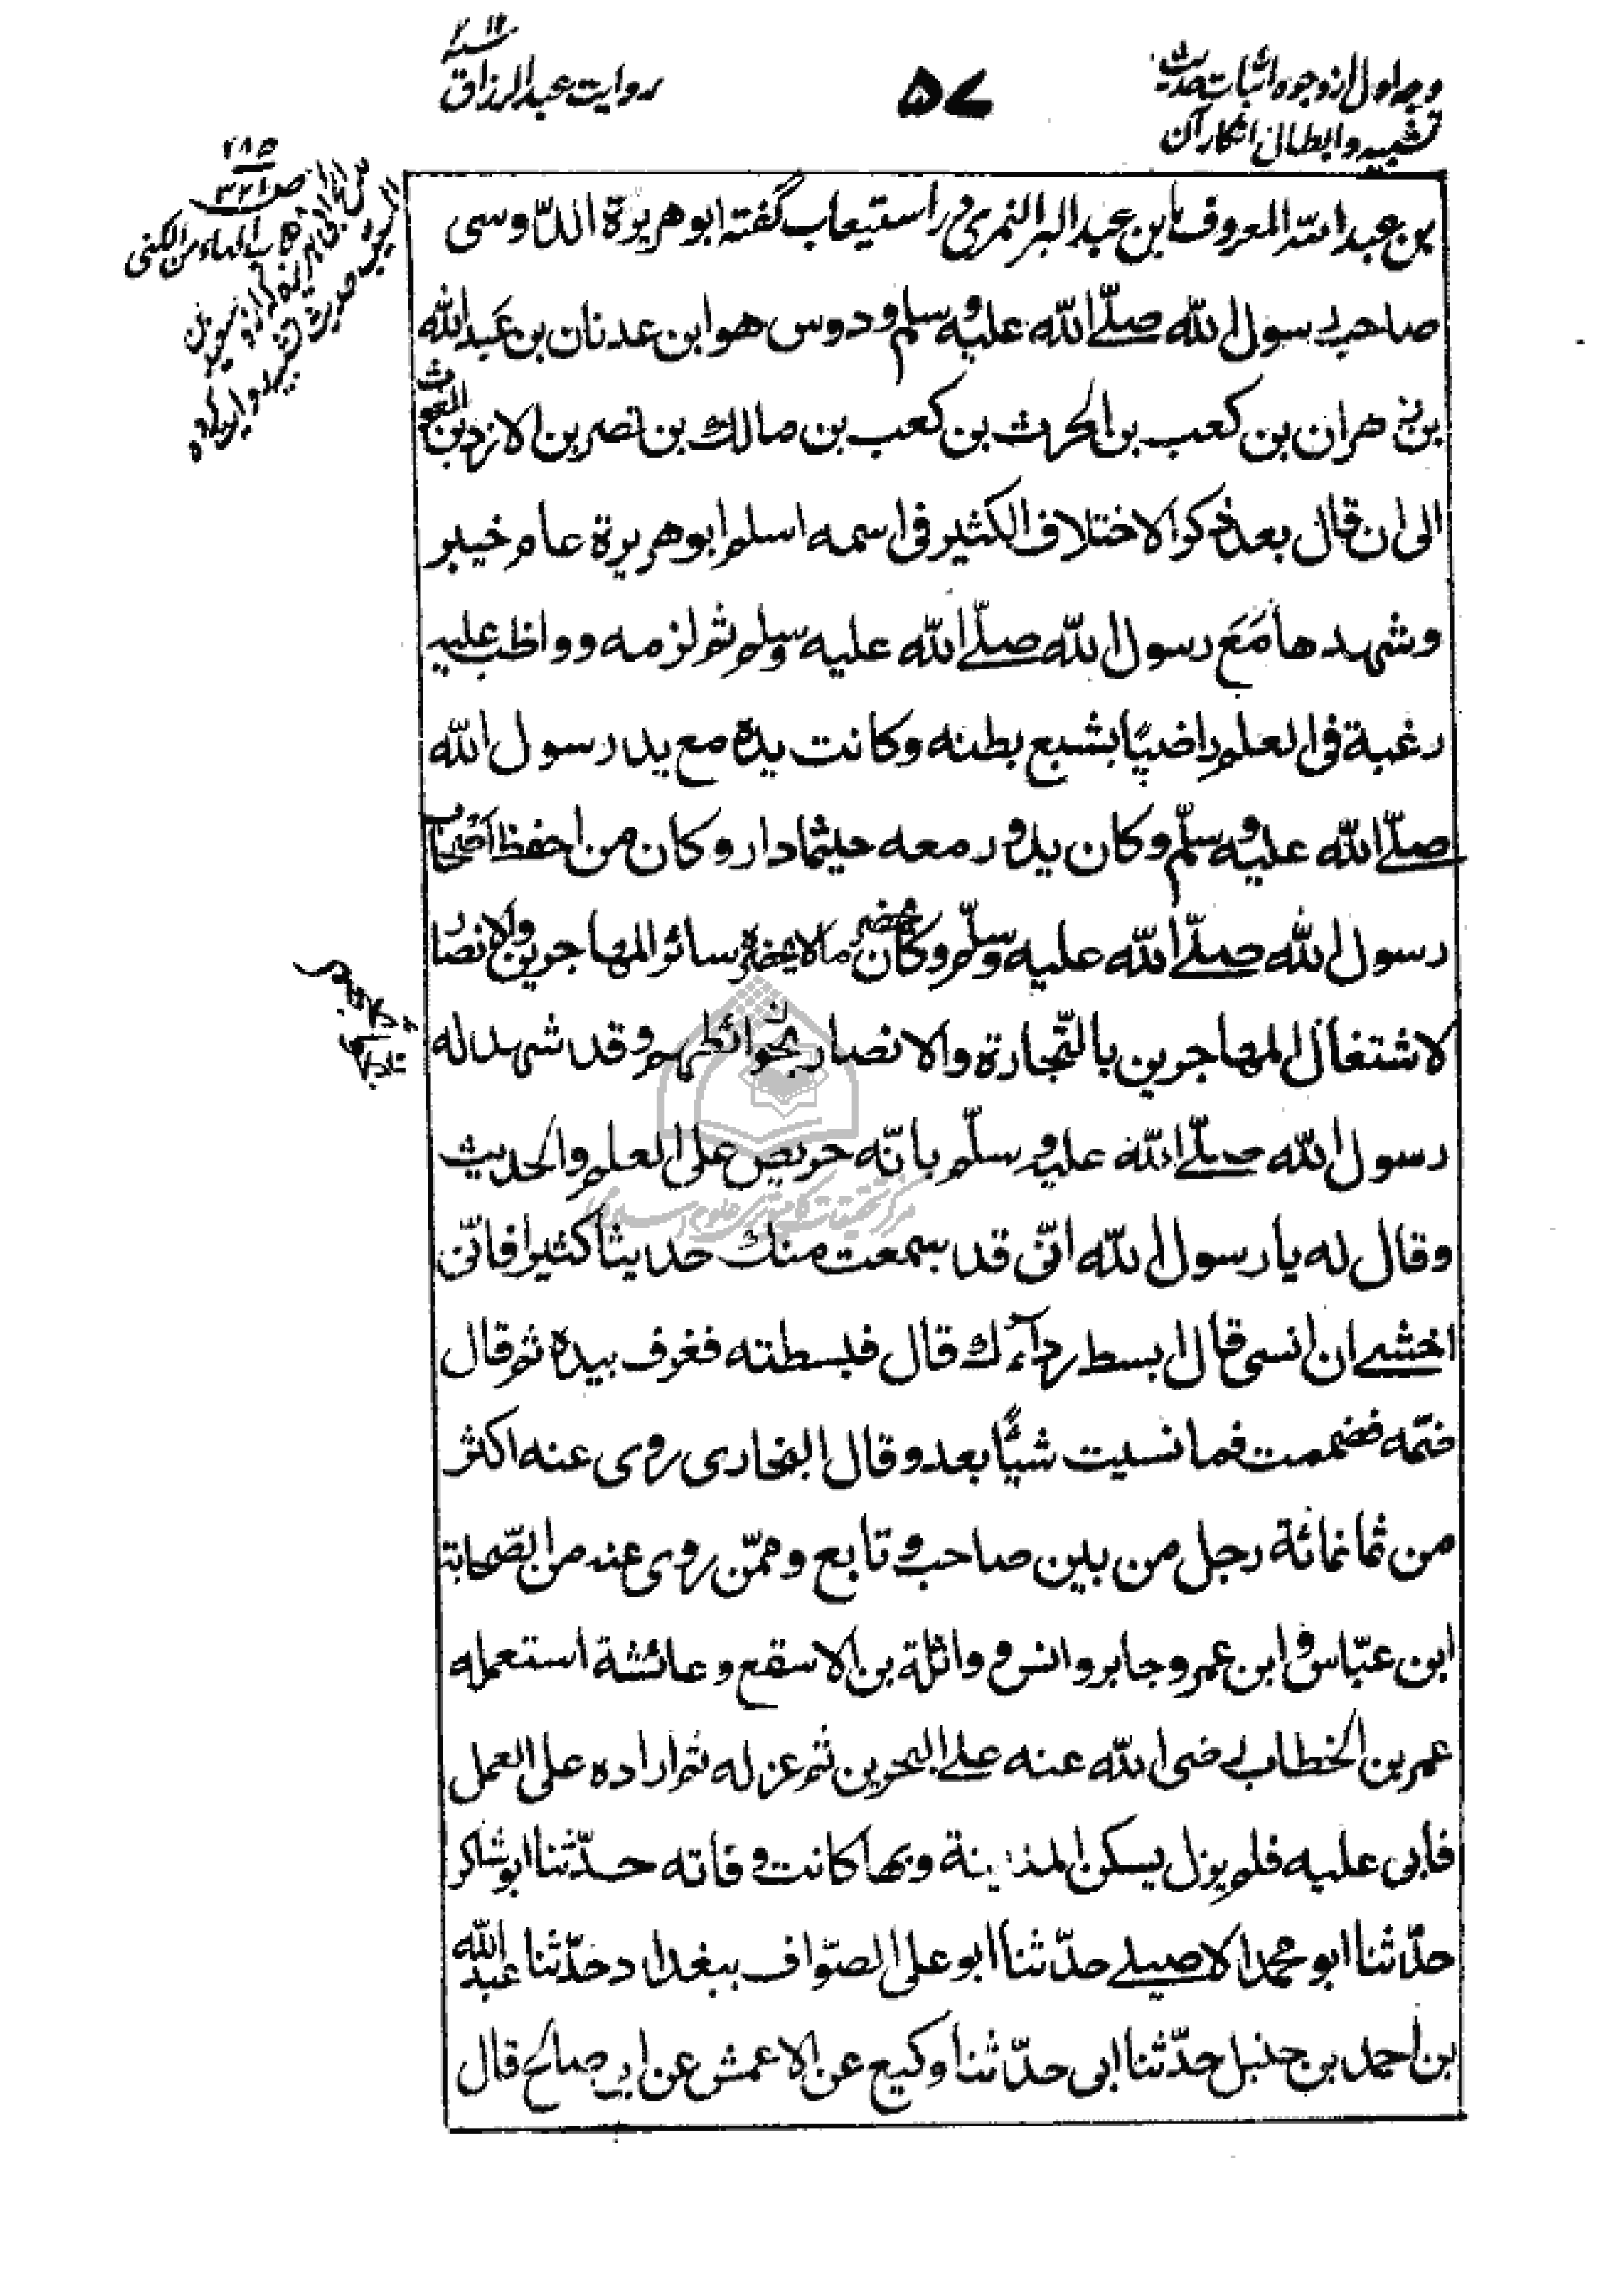 وجه اول از وجوه اثبات حدیث
تشبیه و ابطال انکار آن
۵۷
روایت عبدالرزاق
سنه
۲۱۲
۲۸۵
ص ۳۳۱
بن عبد الله المعروف بابن عبد البر النمری در استیعاب گفته ابو هریرة الدّوسی
صاحب رسول الله صلّے الله علیه و سلم و دوس هو ابن عدنان بن عبد الله
بن زهران بن کعب بن الحرث بن کعب بن مالك بن نصر بن الازد بن الغوث
الی ان قال بعد ذکر الاختلاف الکثیر فی اسمه اسلم ابو هریرة عام خیبر
و شهدها مَعَ رسول الله صلّے الله علیه وسلم ثم لزمه و واظب علیه
رغبة فی العلم راضیًا بشبع بطنه و کانت یده مع ید رسول الله
صلّے الله علیه و سلّم و کان یدور معه حیثما دار و کان من احفظ اصحاب
رسول الله صلّے الله علیه وسلّم و کان یحضر مالا یحضر سائر المهاجرین والانصار
لاشتغال المهاجرین بالتّجارة والانصار بحوائطهم و قد شهد له
رسول الله صلّے الله علیه و سلّم بانّه حریص علی العلم والحدیث
و قال له یا رسول الله انّی قد سمعت منك حدیثا کثیرا فانّی
اخشے ان انسی قال ابسط ردآءك قال فبسطته فغرف بیده ثم قال
ضمّه فضممت فما نسیت شیئًا بعد و قال البخاری روی عنه اکثر
من ثمانمائة رجل من بین صاحب و تابع و ممّن روی عنه من الصّحابة
ابن عبّاس و ابن عمر و جابر و انس و واثلة بن الاسقع و عائشة استعمله
عمر بن الخطاب رضی الله عنه علے البحرین ثم عزله ثم اراده علی العمل
فابی علیه فلم یزل یسکن المدینة و بها کانت وفاته حدّثنا ابو شاکر
حدّثنا ابو محمد الاصیلے حدّثنا ابو علی الصّواف ببغداد حدّثنا عبد الله
بن احمد بن حنبل حدّثنا ابی حدّثنا وکیع عن الاعمش عن ابی صالح قال